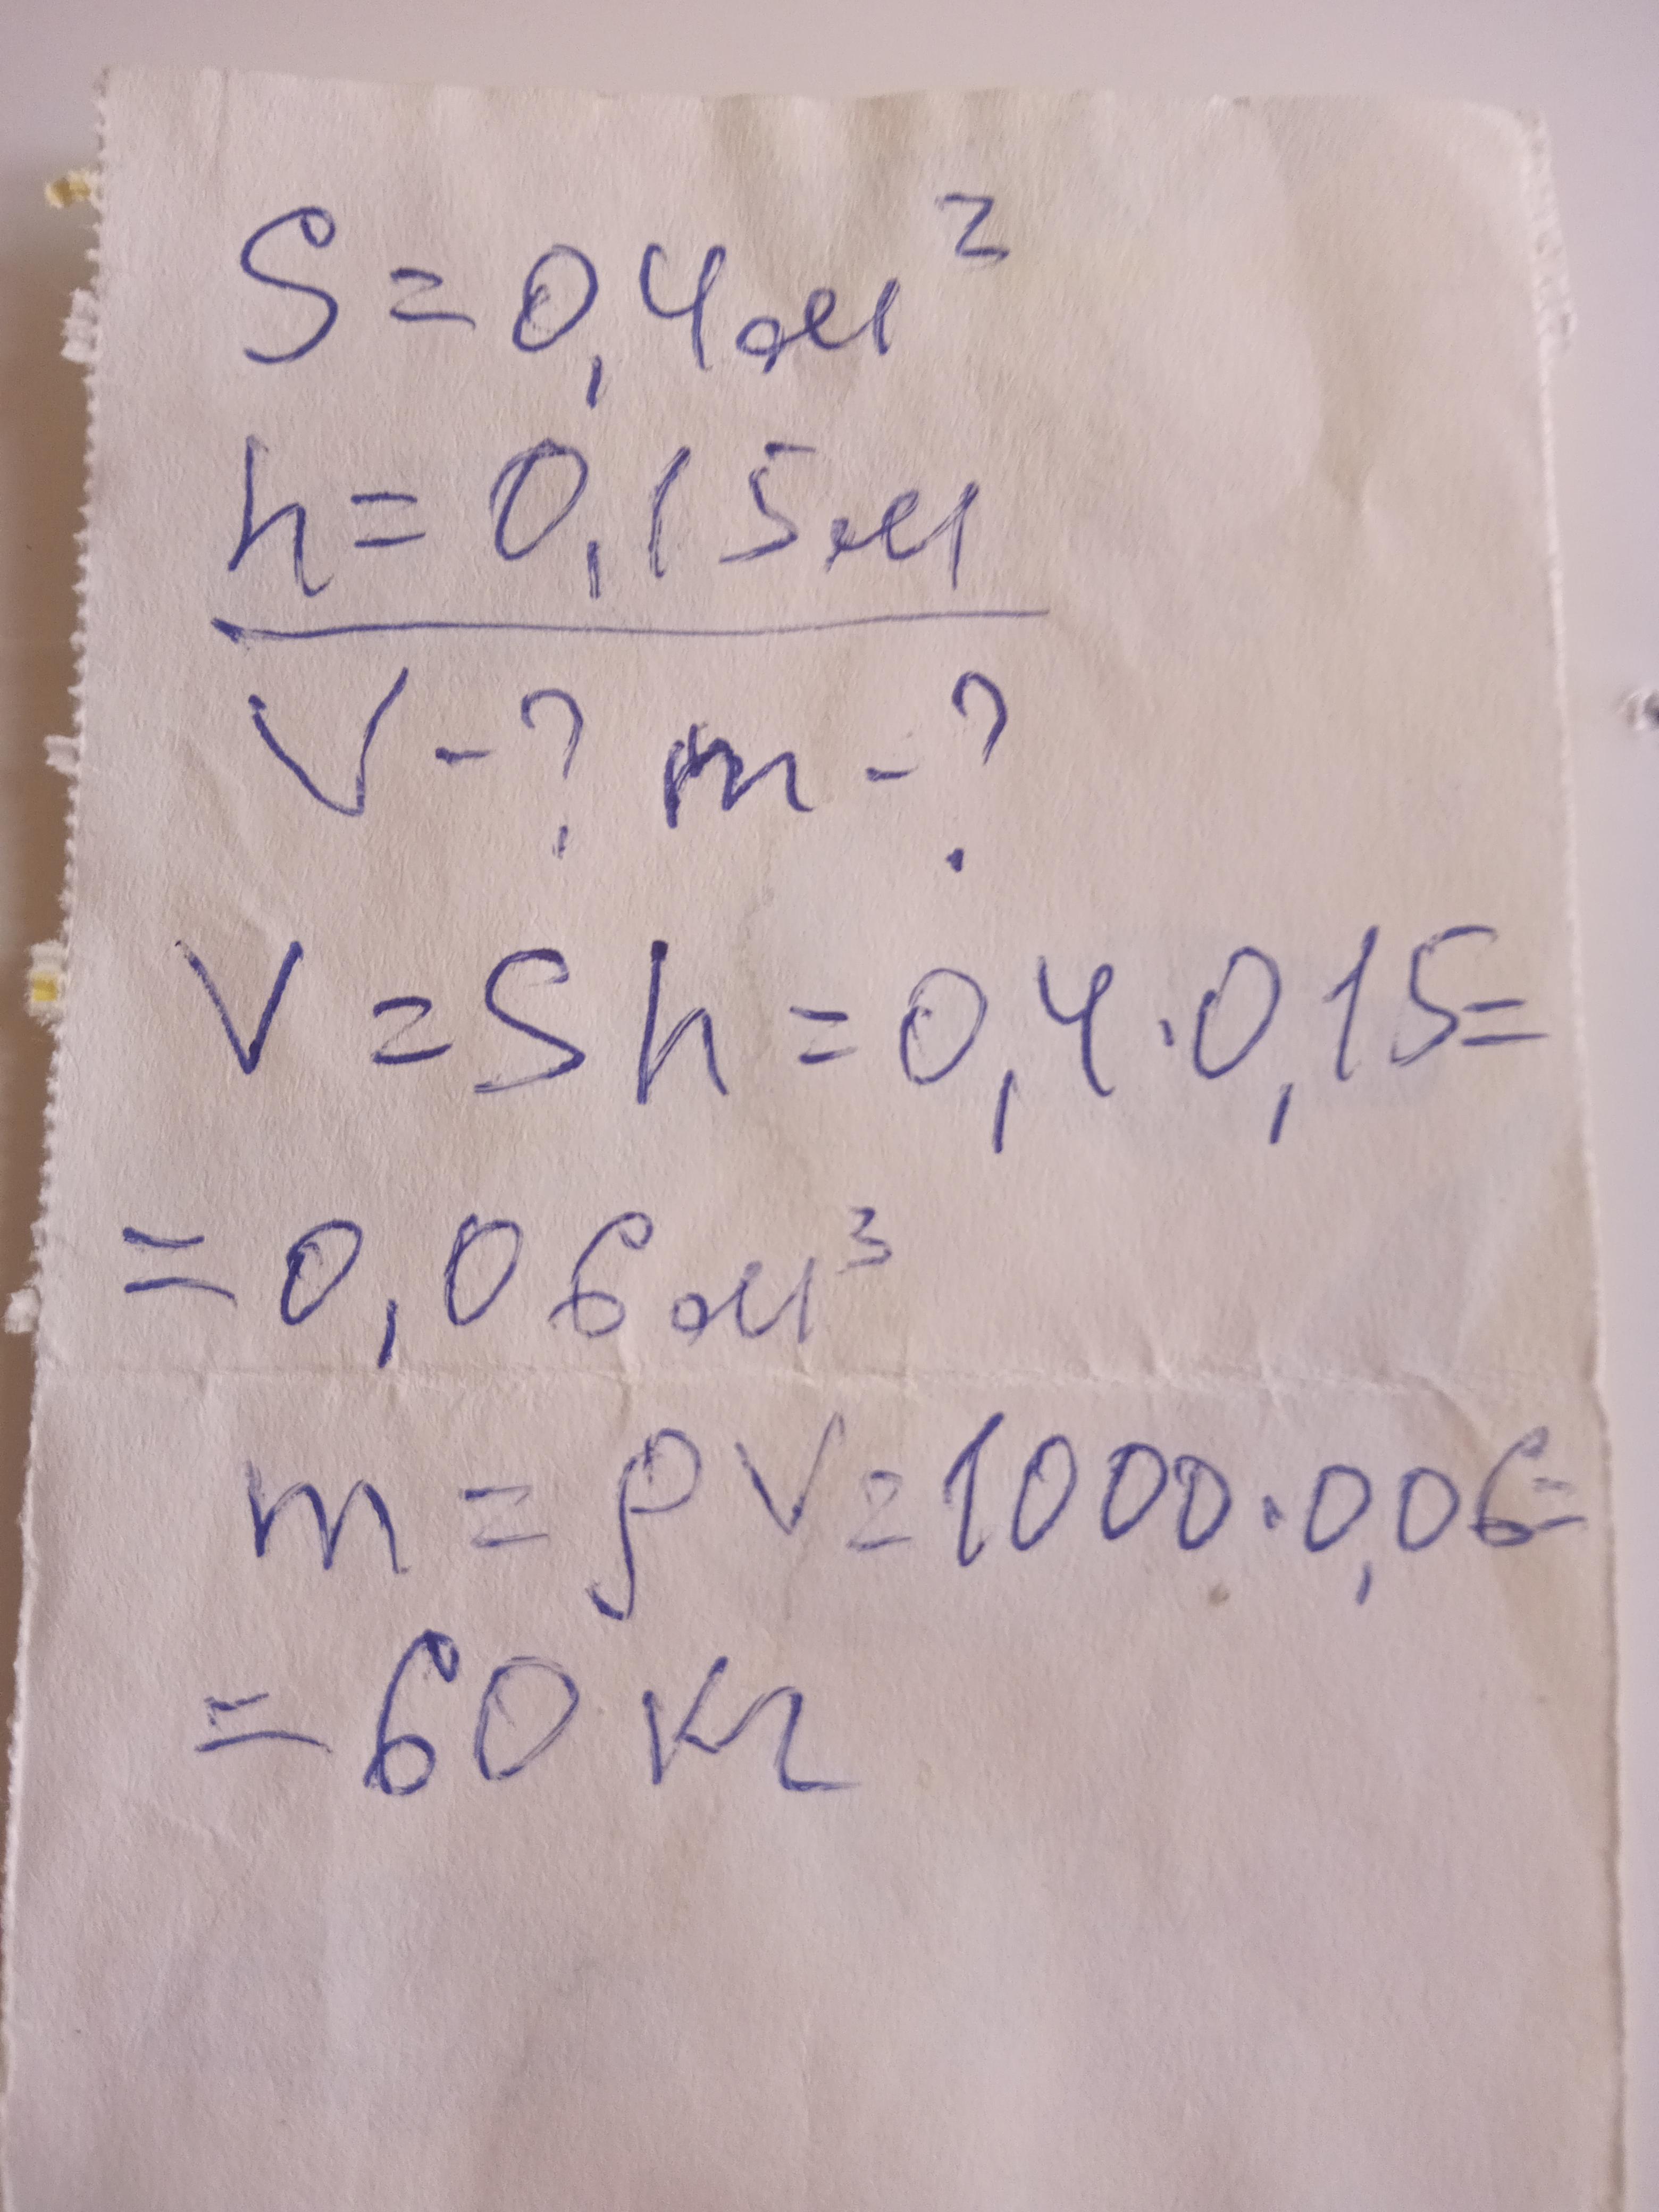 S = 0,4 м²
h = 0,15 м
V - ? m - ?
V = Sh = 0,4 · 0,15 =
= 0,06 м³
m = ρV = 1000 · 0,06 =
= 60 кг